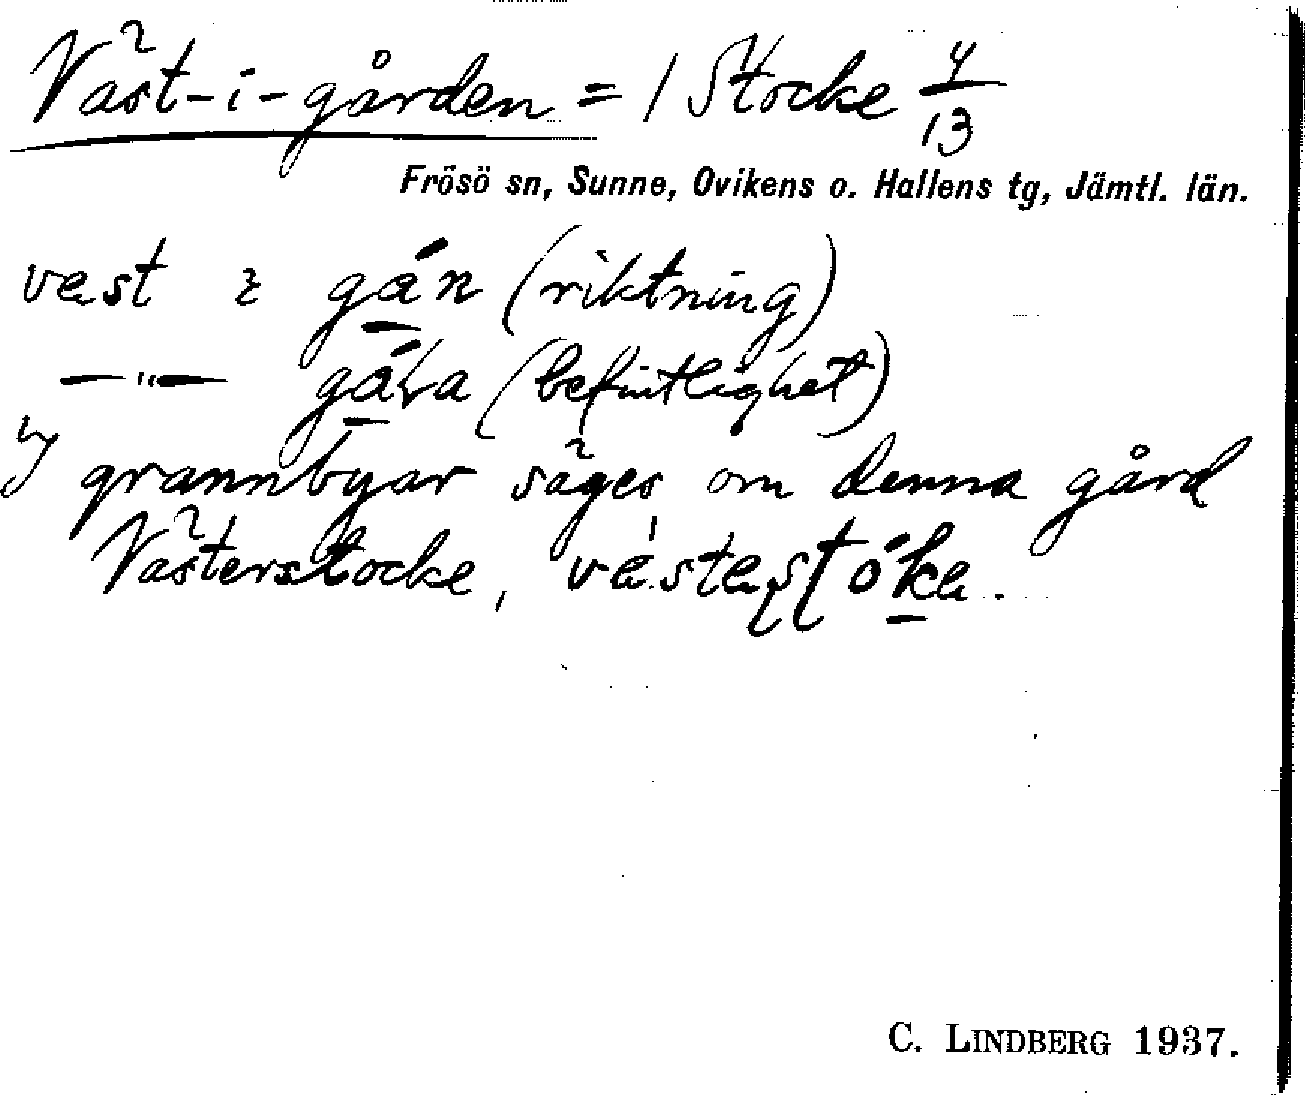 Väst-i-gården = 1 Stocke 4/13
Frösö sn, Sunne, Ovikens o. Hallens tg, Jämtl. län.
vest ɿ gán (riktning)
—"— gáɽa (befintlighet)
I grannbyar säges om denna gård
Västerstocke, vèstestóke.
C. LINDBERG 1937.